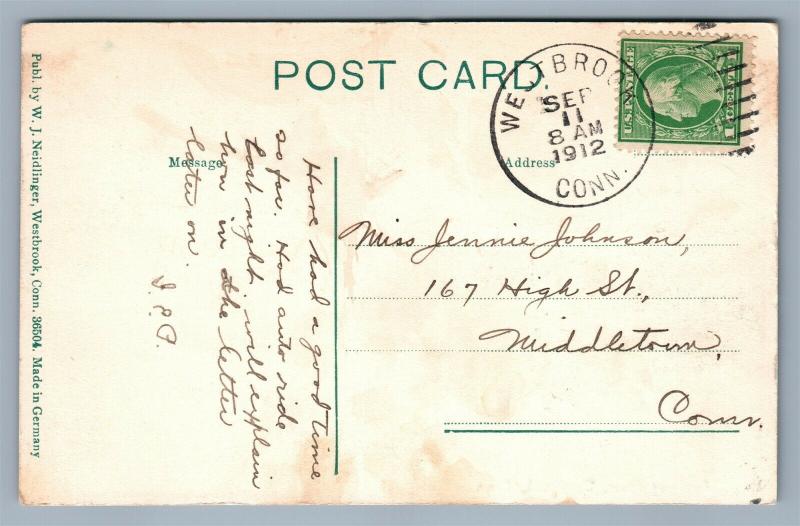 POST CARD.
Message
Address
WESTBROOK
SEP
11
8 AM
1912
CONN.
U.S. POSTAGE
Have had a good time
so far. Had auto ride
last night. will explain
how in the letter
later on.
Miss Jennie Johnson,
167 High St.,
Middletown,
Conn.
Publ. by W. J. Neidlinger, Westbrook, Conn. 36504. Made in Germany